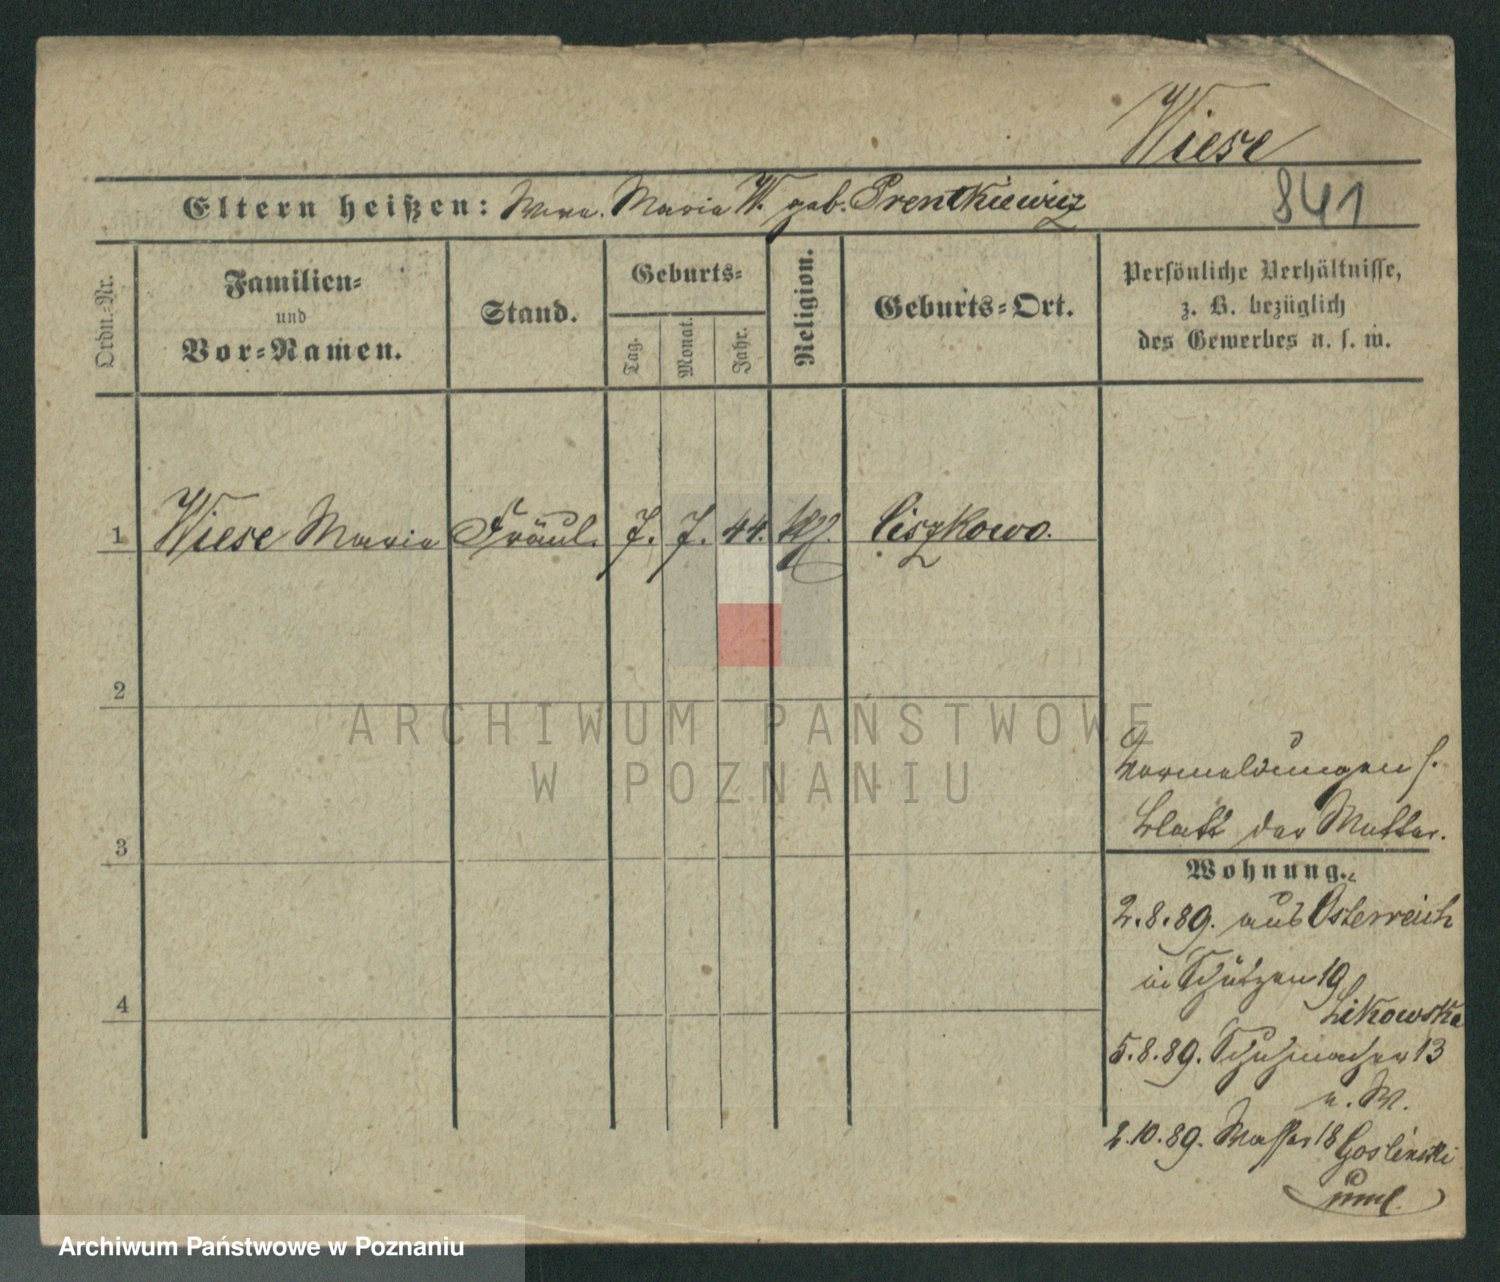 Wiese
Eltern heißen: Wwe. Maria W. geb. Prentkiewicz
841
Ordn.-Nr.
Familien-
und
Vor-Namen.
Stand.
Geburts-
Tag.
Monat.
Jahr.
Religion.
Geburts-Ort.
Persönliche Verhältnisse,
z. B. bezüglich
des Gewerbes u. s. w.
1 Wiese Maria Fräul. 7. 7. 44. Liszkowo.
2
3
4
Vermeldungen s.
Blatt der Mutter.
Wohnung.
2.8.89. aus Österreich
in Schützen 19
Likowska
5.8.89. Schuhmacher 13
2.10.89. Wasser 18 Goslinski
ARCHIWUM PAŃSTWOWE
W POZNANIU
Archiwum Państwowe w Poznaniu